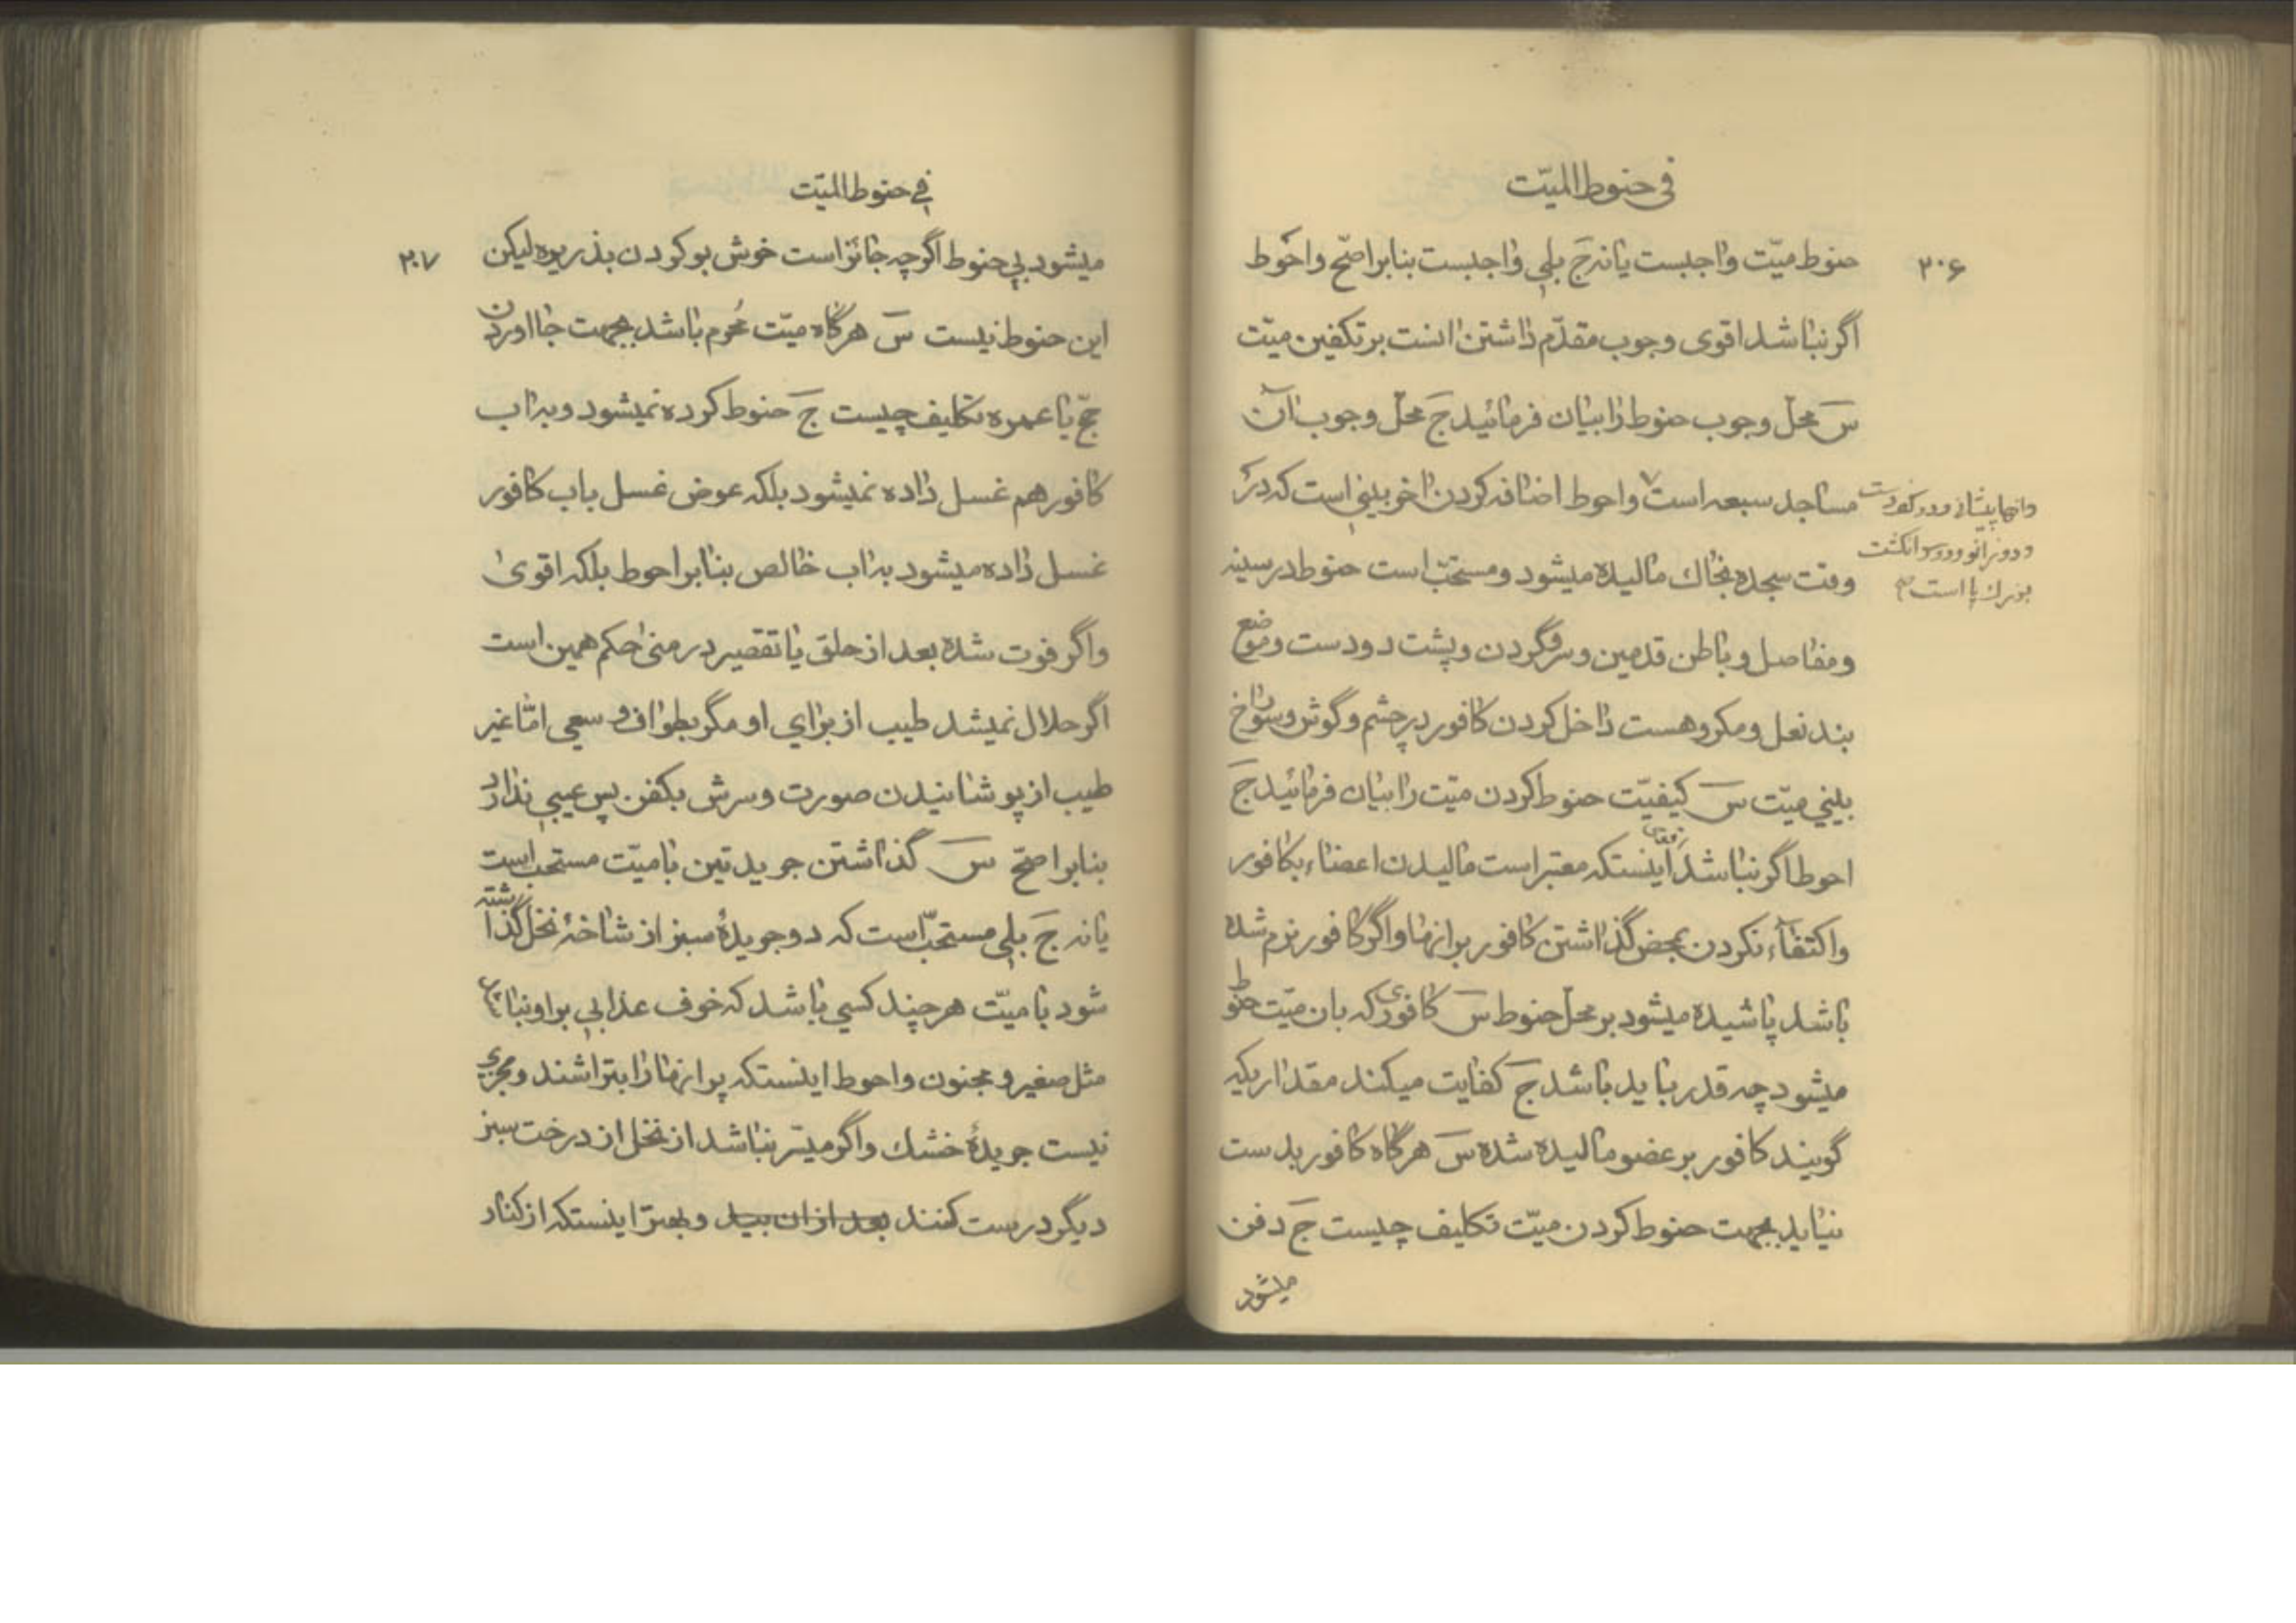 فی حنوط المیّت
۳۰۶
حنوط میّت واجبست یا نه جَ بلی واجبست بنابر اصحّ واحوط
اگر نباشد اقوی وجوب مقدّم داشتن انست بر تکفین میّت
سَ محلّ وجوب حنوط را بیان فرمائید جَ محلّ وجوب آن
مساجد سبعه است ۷ واحوط اضافه کردن اخر بینی است که در
وانها پیشانی ودو کف دست
ودو زانو ودو سر انگشت
بزرك پا است
وقت سجده بخاك مالیده میشود ومستحبّ است حنوط در سینه
ومفاصل وباطن قدمین وسر وگردن وپشت دو دست وموضع
بند نعل ومکروهست داخل کردن کافور در چشم وگوش وسوراخ
بینی میّت سَ کیفیّت حنوط کردن میّت را بیان فرمائید جَ
احوط اگر نباشد اینستکه معتبر است مالیدن اعضاء بکافور
واکتفآء نکردن بمحض گذاشتن کافور بر انها واگر کافور نرم شده
باشد پاشیده میشود بر محلّ حنوط سَ کافوری که بان میّت حنوط
میشود چه قدر باید باشد جَ کفایت میکند مقداریکه
گویند کافور بر عضو مالیده شده سَ هرگاه کافور بدست
نیاید بجهت حنوط کردن میّت تکلیف چیست جَ دفن
میشود
فی حنوط المیّت
۳۰۷
میشود بی حنوط اگرچه جائز است خوش بو کردن بذریره لیکن
این حنوط نیست سَ هرگاه میّت مُحرم باشد بجهت جا اوردن
حجّ یا عمره تکلیف چیست جَ حنوط کرده نمیشود وبه اب
کافور هم غسل داده نمیشود بلکه عوض غسل باب کافور
غسل داده میشود به اب خالص بنابر احوط بلکه اقوی
واگر فوت شده بعد از حلق یا تقصیر در منی حکم همین است
اگر حلال نمیشد طیب از برای او مگر بطواف وسعی امّا غیر
طیب از پوشانیدن صورت وسرش بکفن پس عیبی ندارد
بنابر اصحّ سَ گذاشتن جریدتین با میّت مستحب است
یا نه جَ بلی مستحبّ است که دو جریدهٔ سبز از شاخهٔ نخل گذاشته
شود با میّت هر چند کسی باشد که خوف عذابی بر او نباشد
مثل صغیر ومجنون واحوط اینستکه پر انها را بتراشند ومجزی
نیست جریدهٔ خشك واگر میسّر نباشد از نخل از درخت سبز
دیگر درست کنند بعد از ان بید وبهتر اینستکه از کنار